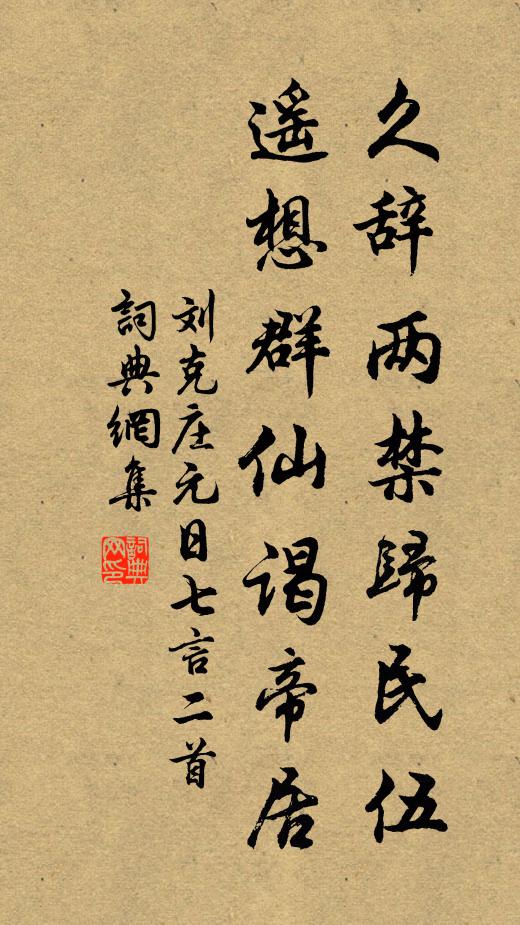 久辞两禁歸民伍
遥想群仙谒帝居
刘克庄元日七言二首
詞典網集
詞典
网印